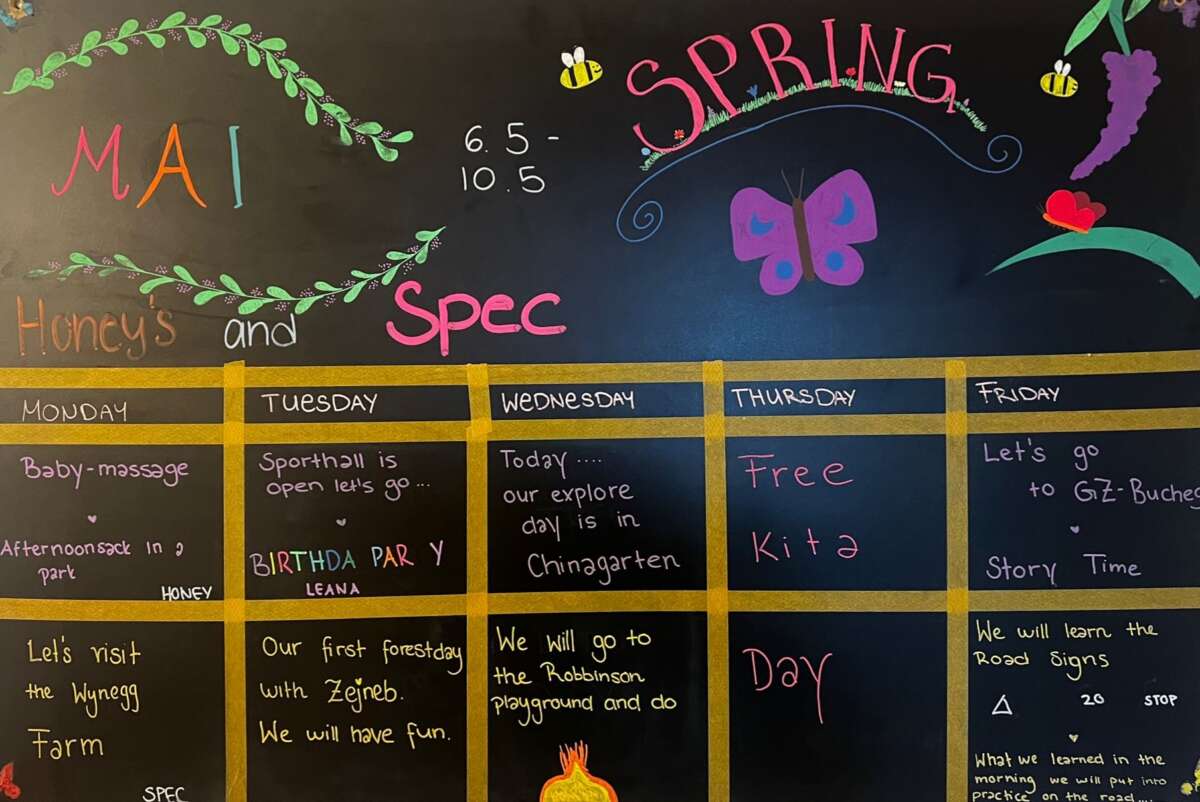 MAI
6.5 -
10.5
SPRING
Honey's and Spec
MONDAY
TUESDAY
WEDNESDAY
THURSDAY
FRIDAY
Baby-massage
Afternoonsack in a
park
HONEY
Sporthall is
open let's go ...
BIRTHDA PAR Y
LEANA
Today ....
our explore
day is in
Chinagarten
Free
Kita
Let's go
to GZ-Bucheg
Story Time
Let's visit
the Wynegg
Farm
SPEC
Our first forestday
with Zejneb.
We will have fun.
We will go to
the Robbinson
playground and do
Day
We will learn the
Road Signs
20 STOP
What we learned in the
morning we will put into
practice on the road....